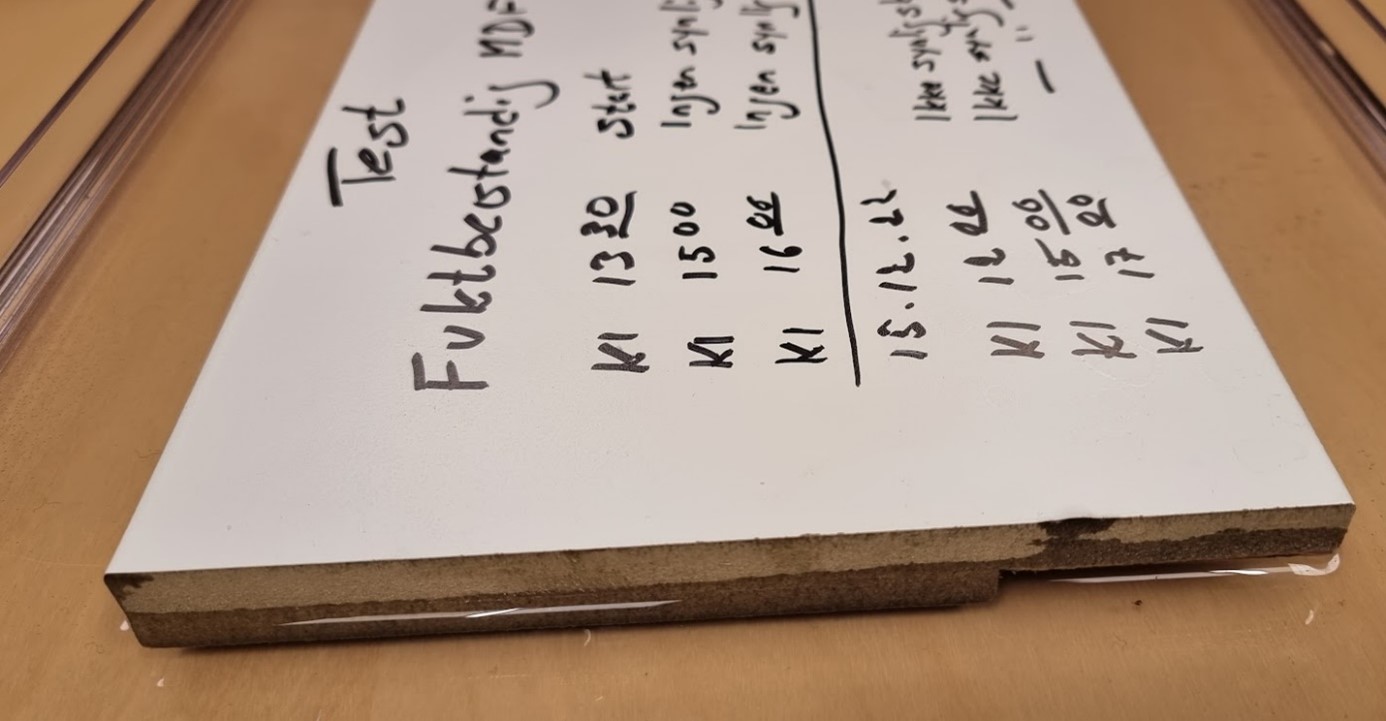 Test
Fuktbestandig MDF
Kl 13 30 Start
Kl 15 00 Ingen synlig
Kl 16 00 Ingen synlig
15.12.22
Kl 12 00 Ikke synlig
Kl 15 00 Ikke synlig
Kl 17 00 — 11